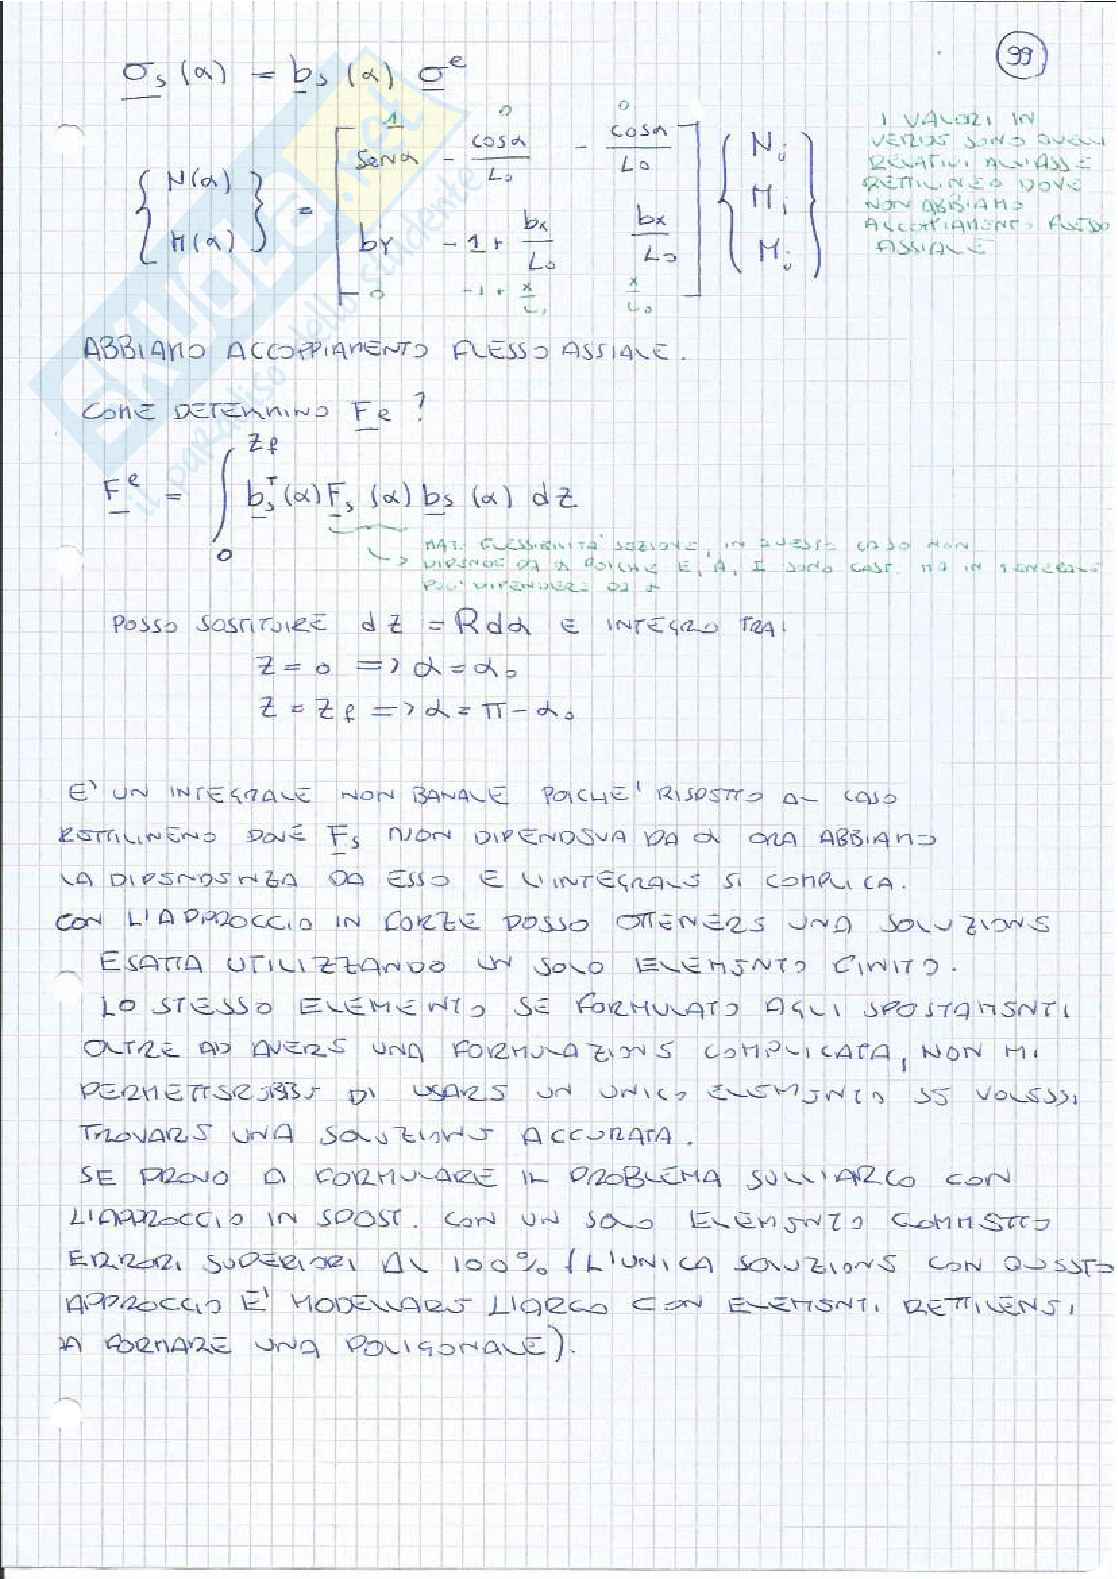 99
σs (α) = bs (α) σe
1 0 0
{ N(α) M(α) } = [ senα - cosα/L0 - cosα/L0 ; by -1+ bx/L0 bx/L0 ] { Nj Mi Mj }
0 -1+ x/L0 x/L0
I VALORI IN
VERDE SONO QUELLI
RELATIVI ALL'ASSE
RETTILINEO DOVE
NON ABBIAMO
ACCOPPIAMENTO FLESSO
ASSIALE
ABBIAMO ACCOPPIAMENTO FLESSO ASSIALE.
COME DETERMINO Fe ?
Fe = ∫0^zf bsT(α) Fs (α) bs (α) dz
MAT. FLESSIBILITA' SEZIONE, IN QUESTO CASO NON
DIPENDE DA α POICHE E, A, I SONO COST. MA IN GENERALE
PUO' DIPENDERE DA
POSSO SOSTITUIRE dz = Rdα E INTEGRO TRA:
z = 0 => α = α0
z = zf => α = π - α0
E' UN INTEGRALE NON BANALE POICHE' RISPETTO AL CASO
RETTILINENO DOVE Fs NON DIPENDEVA DA α ORA ABBIAMO
LA DIPENDENZA DA ESSO E L'INTEGRALE SI COMPLICA.
CON L'APPROCCIO IN FORZE POSSO OTTENERE UNA SOLUZIONE
ESATTA UTILIZZANDO UN SOLO ELEMENTO FINITO.
LO STESSO ELEMENTO SE FORMULATO AGLI SPOSTAMENTI
OLTRE AD AVERE UNA FORMULAZIONE COMPLICATA, NON MI
PERMETTEREBBE DI USARE UN UNICO ELEMENTO SE VOLESSI
TROVARE UNA SOLUZIONE ACCURATA.
SE PROVO A FORMULARE IL PROBLEMA SULL'ARCO CON
L'APPROCCIO IN SPOST. CON UN SOLO ELEMENTO COMMETTO
ERRORI SUPERIORI AL 100% (L'UNICA SOLUZIONE CON QUESTO
APPROCCIO E' MODELLARE L'ARCO CON ELEMENTI RETTILENEI
A FORMARE UNA POLIGONALE).
SKUOLA.net
il paradiso dello studente